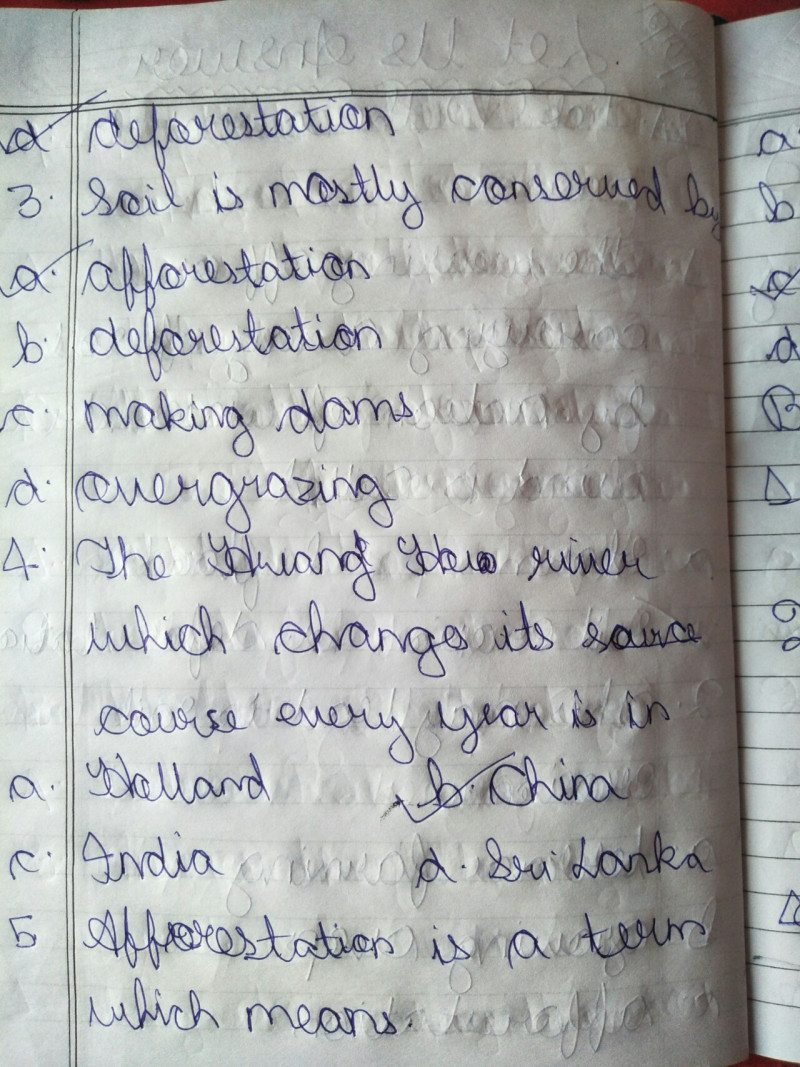 d. deforestation
3. Soil is mostly conserved by
a. afforestation
b. deforestation
c. making dams
d. overgrazing
4. The Hwang Ho river
which changes its source
course every year is in
a. Holland b. China
c. India d. Sri Lanka
5 Afforestation is a term
which means.
a.
b
c
d
B